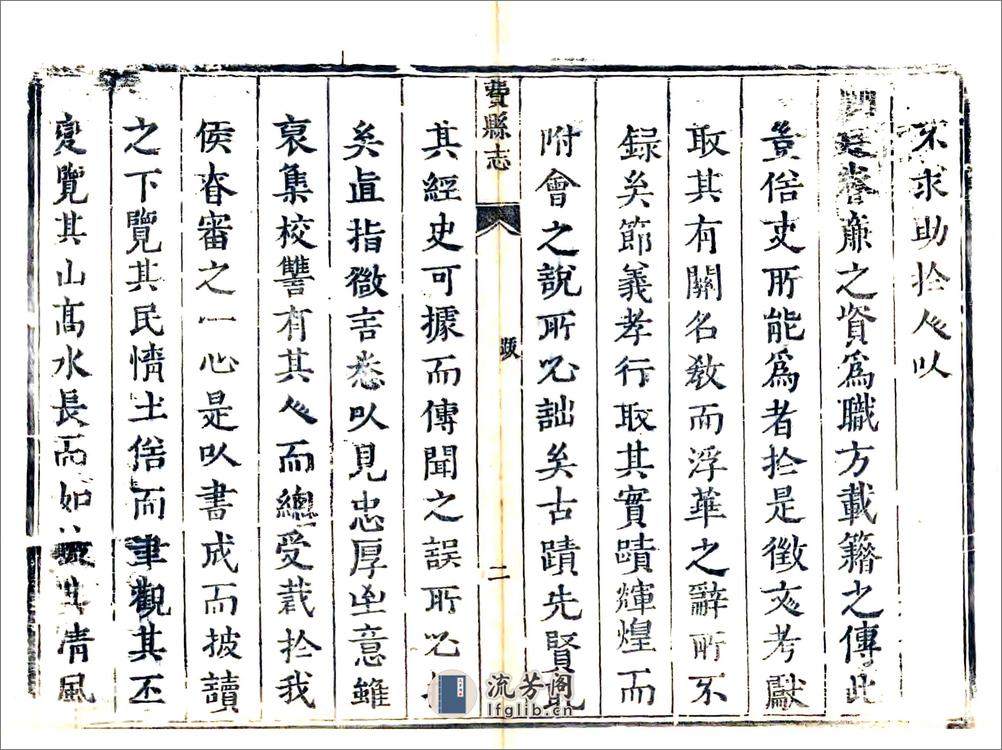 不求助於人以
廉之資爲職方載籍之傳此
豈俗吏所能爲者於是徵文考獻
取其有關名教而浮華之辭所不
録矣節義孝行取其實蹟輝煌而
附會之說所必詘矣古蹟先賢
費縣志
跋
二
其經史可據而傳聞之誤所必
矣直指微言悉以見忠厚之意雖
裒集校讐有其人而總受裁於我
侯春審之一心是以書成而披讀
之下覽其民情土俗而聿觀其丕
變覽其山高水長而如清風
流芳阁
lfglib.cn